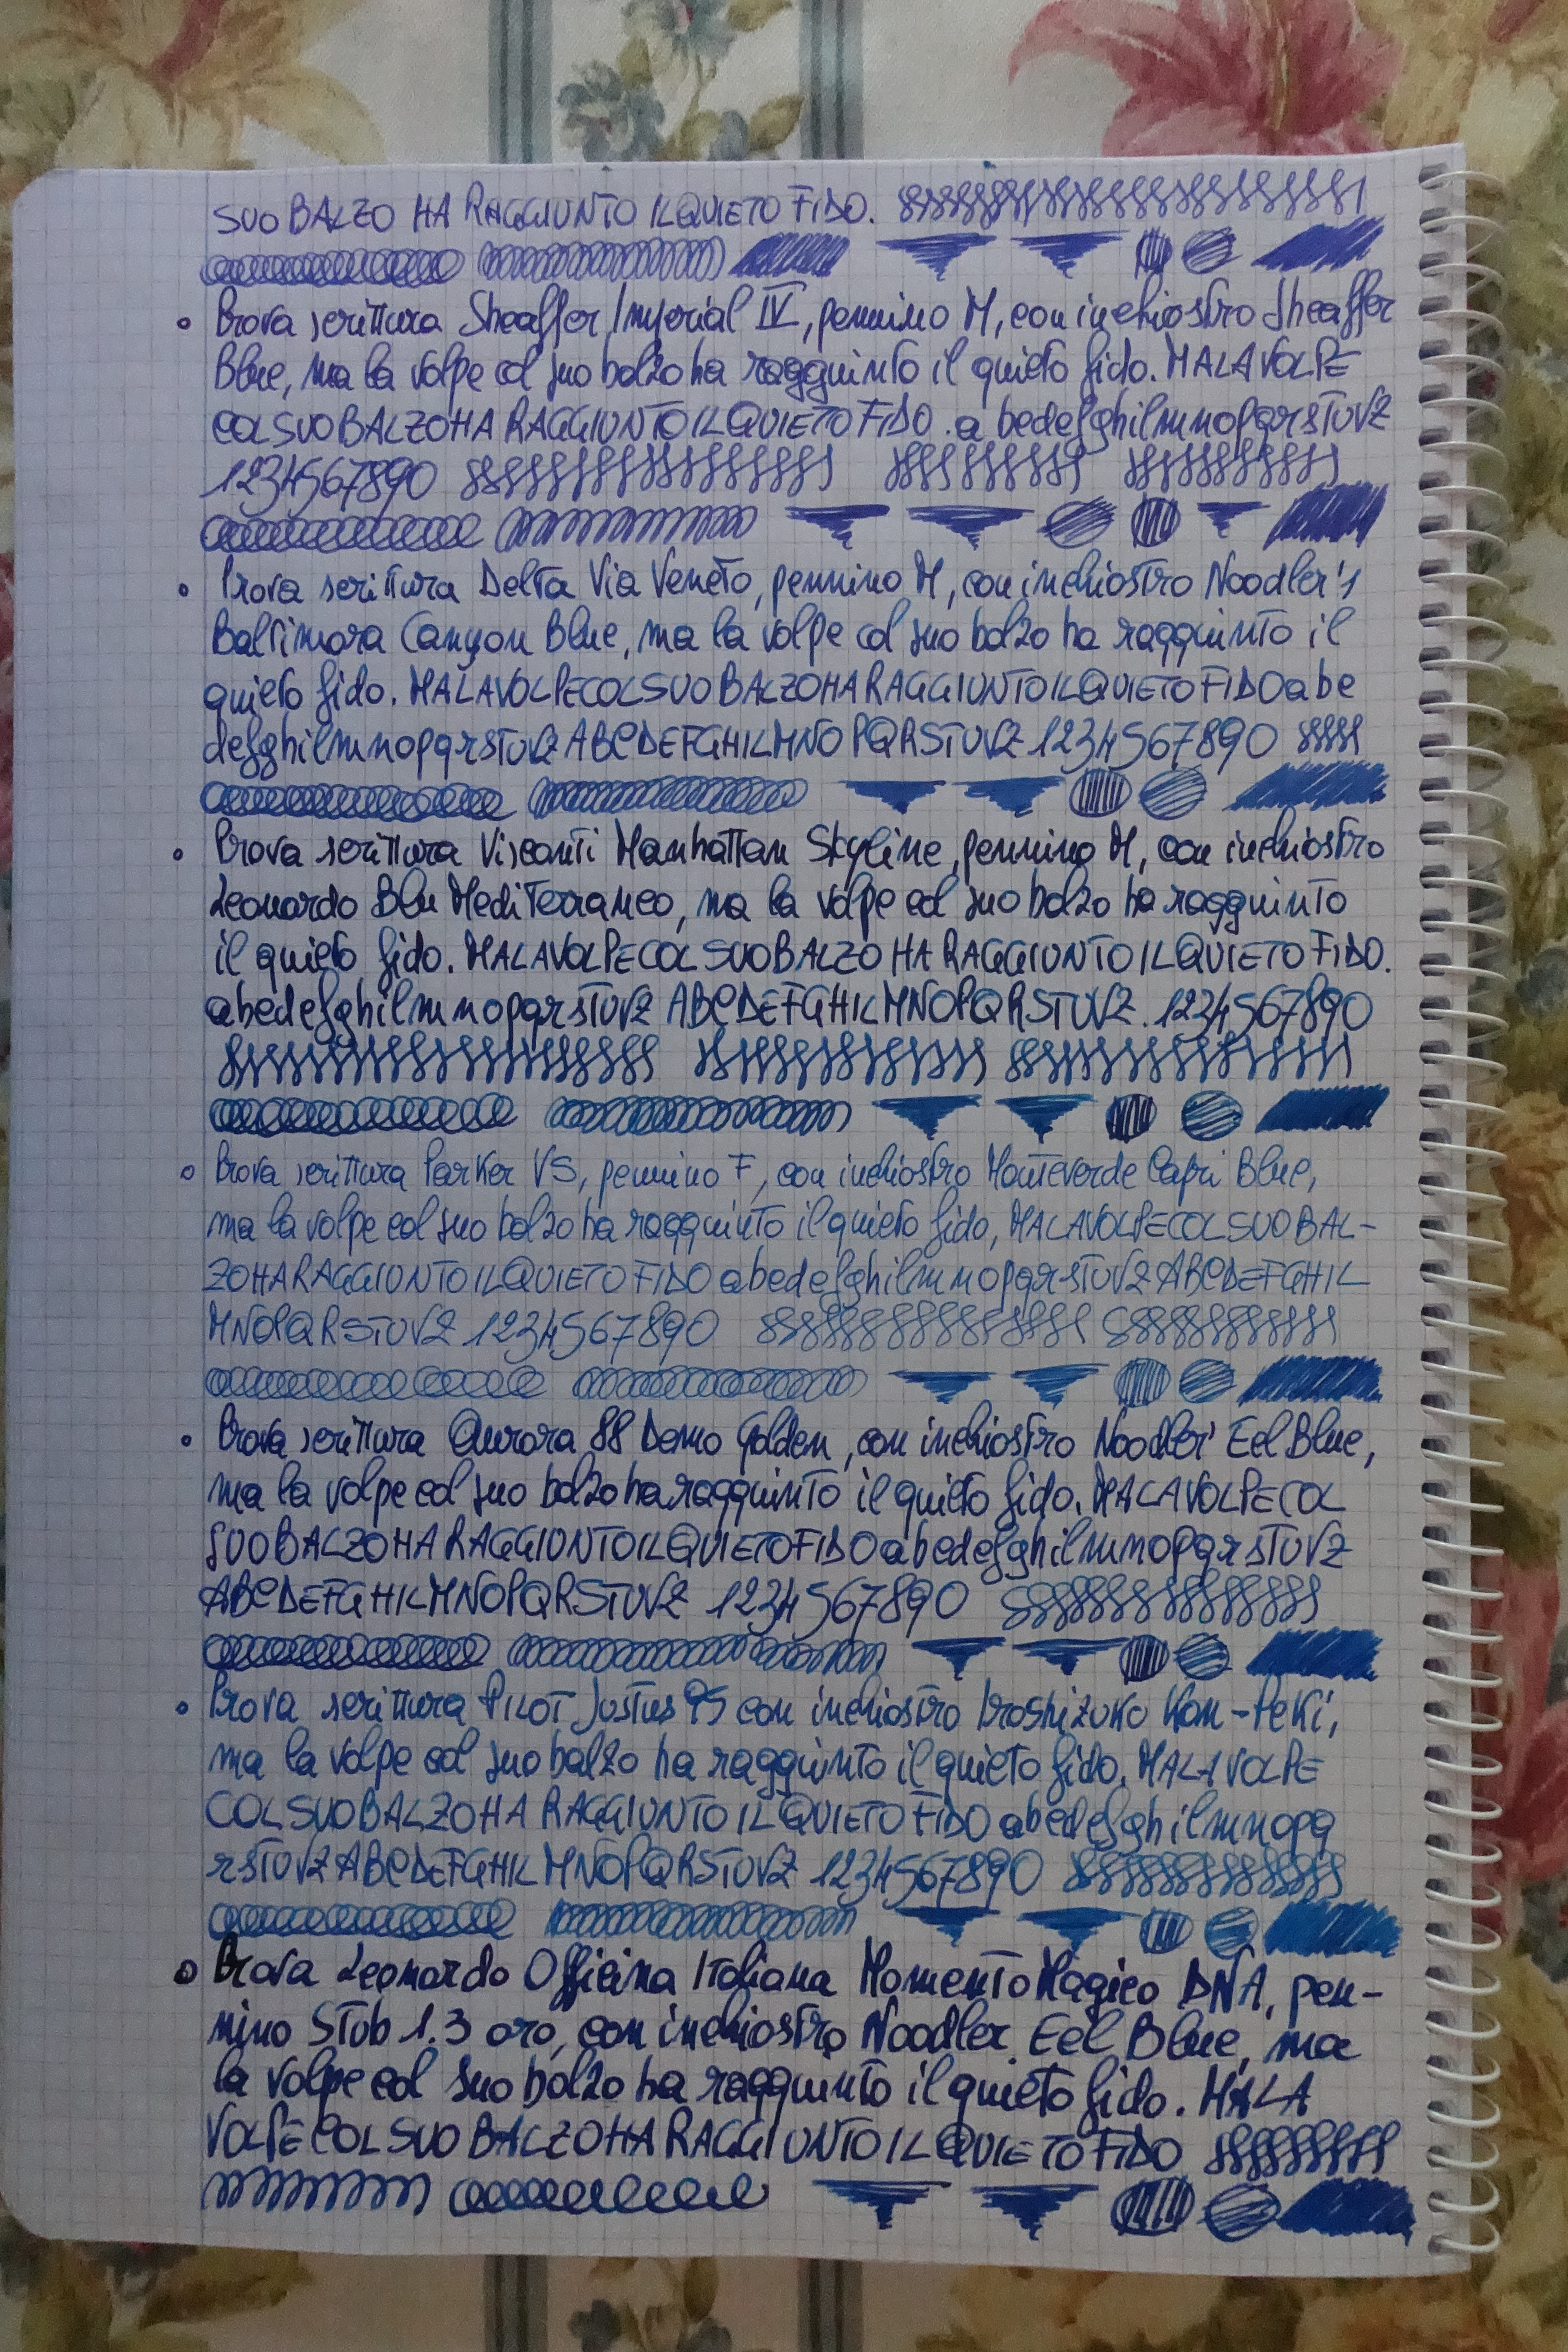 SUO BALZO HA RAGGIUNTO IL QUIETO FIDO.
Prova scrittura Sheaffer Imperial IV, pennino M, con inchiostro Sheaffer
Blue, ma la volpe col suo balzo ha raggiunto il quieto fido. MA LA VOLPE
COL SUO BALZO HA RAGGIUNTO IL QUIETO FIDO. abcdefghilmnopqrstuvz
1234567890
Prova scrittura Delta Via Veneto, pennino M, con inchiostro Noodler's
Baltimora Canyon Blue, ma la volpe col suo balzo ha raggiunto il
quieto fido. MA LA VOLPE COL SUO BALZO HA RAGGIUNTO IL QUIETO FIDO abc
defghilmnopqrstuvz ABCDEFGHILMNOPQRSTUVZ 1234567890
Prova scrittura Visconti Manhattan Skyline, pennino M, con inchiostro
Leonardo Blu Mediterraneo, ma la volpe col suo balzo ha raggiunto
il quieto fido. MA LA VOLPE COL SUO BALZO HA RAGGIUNTO IL QUIETO FIDO.
abcdefghilmnopqrstuvz ABCDEFGHILMNOPQRSTUVZ. 1234567890
Prova scrittura Parker VS, pennino F, con inchiostro Monteverde Capri Blue,
ma la volpe col suo balzo ha raggiunto il quieto fido, MA LA VOLPE COL SUO BAL-
ZO HA RAGGIUNTO IL QUIETO FIDO abcdefghilmnopqrstuvz ABCDEFGHIL
MNOPQRSTUVZ 1234567890
Prova scrittura Aurora 88 Demo Golden, con inchiostro Noodler' Eel Blue,
ma la volpe col suo balzo ha raggiunto il quieto fido. MA LA VOLPE COL
SUO BALZO HA RAGGIUNTO IL QUIETO FIDO abcdefghilmnopqrstuvz
ABCDEFGHILMNOPQRSTUVZ 1234567890
Prova scrittura PILOT Justus 95 con inchiostro Iroshizuko Kon-Peki,
ma la volpe col suo balzo ha raggiunto il quieto fido. MA LA VOLPE
COL SUO BALZO HA RAGGIUNTO IL QUIETO FIDO abcdefghilmnopq
rstuvz ABCDEFGHILMNOPQRSTUVZ 1234567890
Prova Leonardo Officina Italiana Momento Magico DNA, pen-
nino Stub 1.3 oro, con inchiostro Noodler Eel Blue, ma
la volpe col suo balzo ha raggiunto il quieto fido. MA LA
VOLPE COL SUO BALZO HA RAGGIUNTO IL QUIETO FIDO